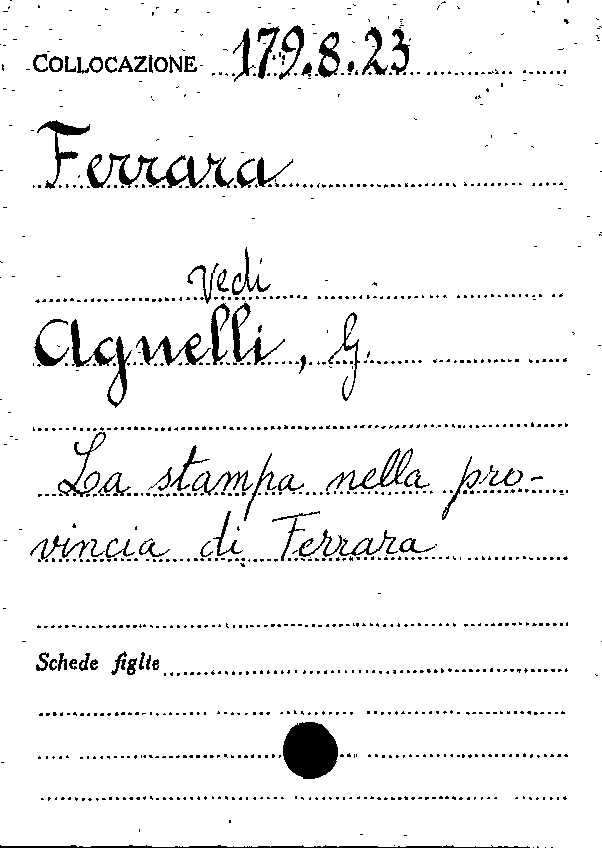 COLLOCAZIONE 179.8.23
Ferrara
Vedi
Agnelli, G.
La stampa nella pro-
vincia di Ferrara
Schede figlie